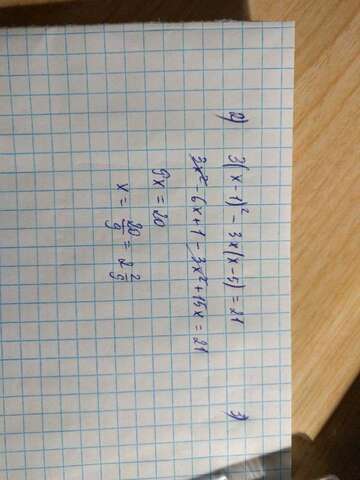 2) 3(x-1)² - 3x(x-5) = 21
3x² - 6x + 1 - 3x² + 15x = 21
9x = 20
x = 20/9 = 2 2/9
3)